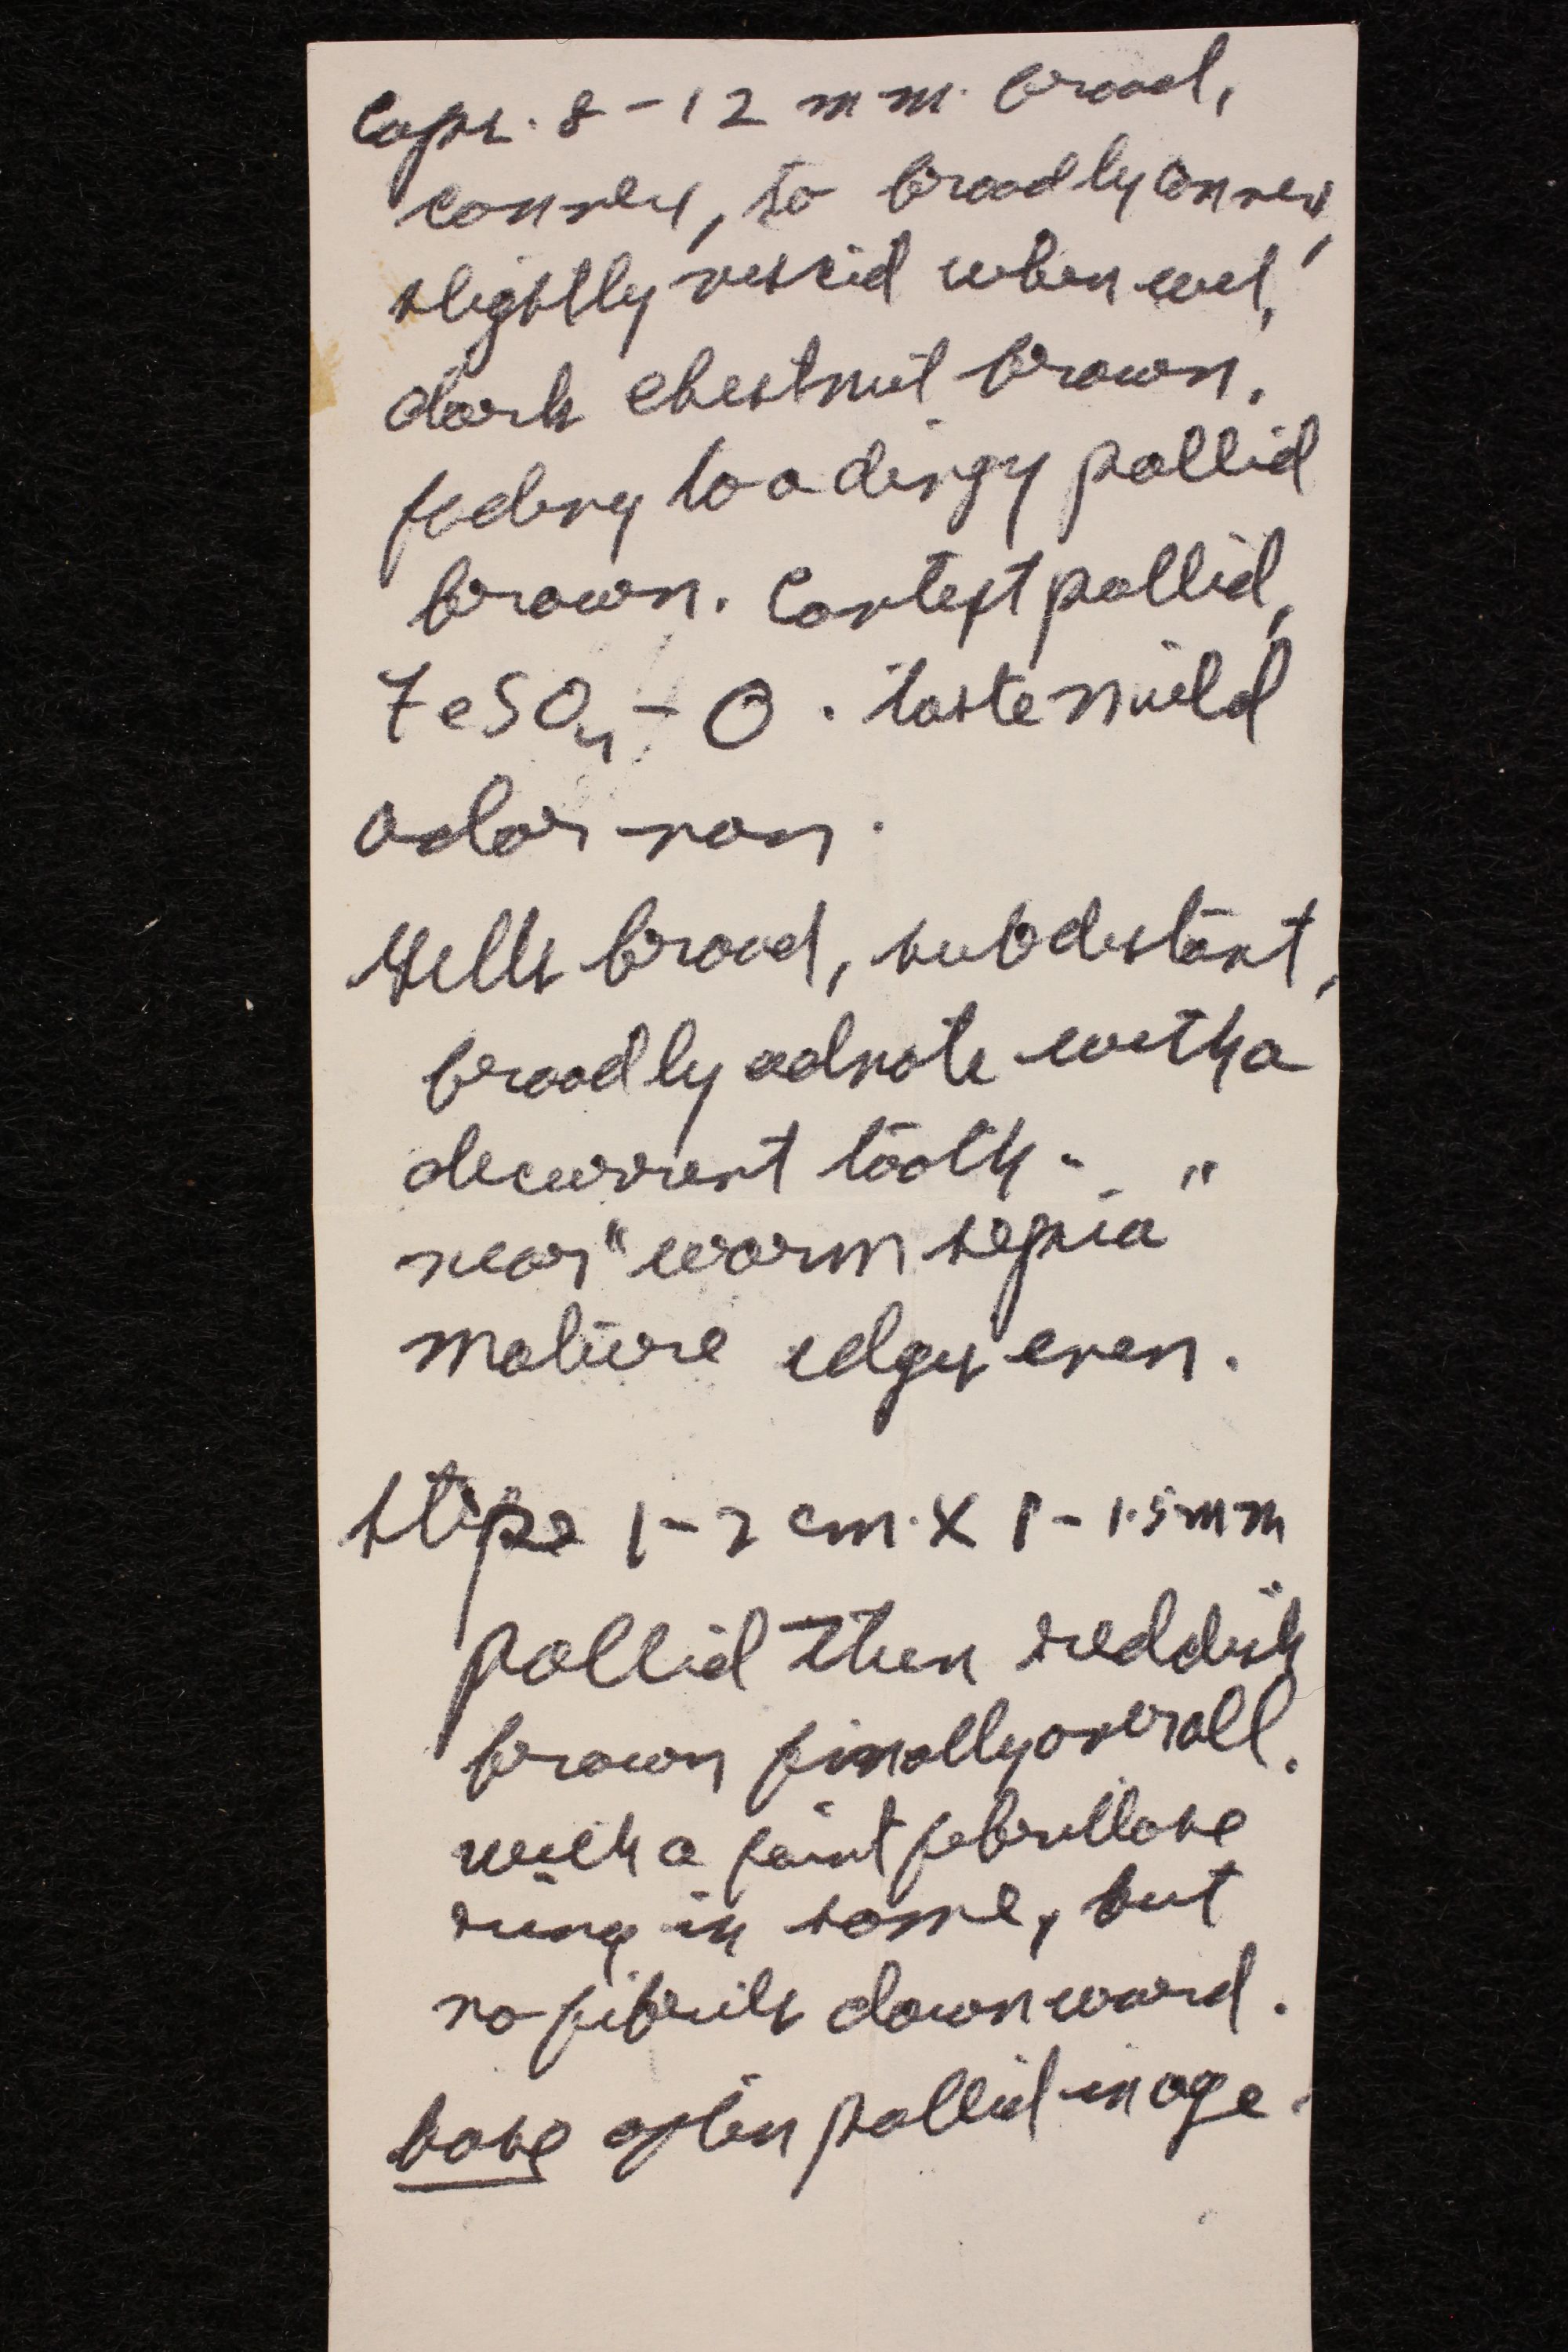 Caps. 8-12 mm. broad,
convex, to broadly convex,
slightly viscid when wet,
dark chestnut brown,
fading to a dingy pallid
brown. Context pallid,
FeSO4 - O. taste mild
odor - non.
Gills broad, subdistant,
broadly adnate with a
decurrent tooth -
near "warm sepia"
mature edges even.
Stipe 1-2 cm. X 1-1.5 mm
pallid then reddish
brown finally overall.
with a faint fibrillose
ring in some, but
no fibrils downward.
base often pallid in age.